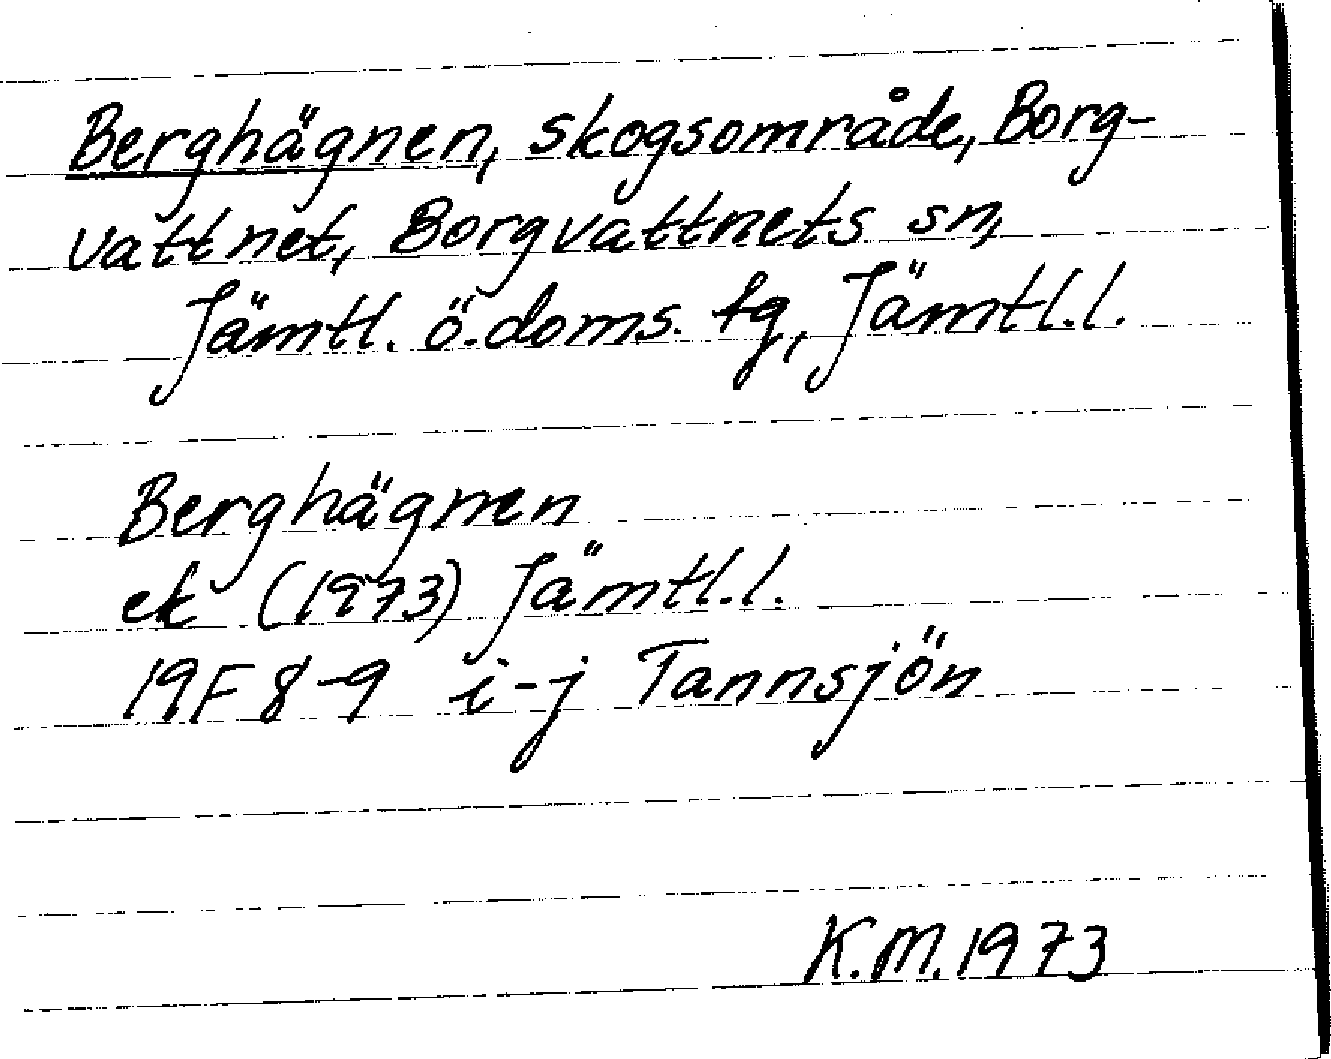 Berghägnen, skogsområde, Borg-
vattnet, Borgvattnets sn,
Jämtl. ö. doms. tg, Jämtl.l.
Berghägnen
ek (1973) Jämtl.l.
19F 8-9 i-j Tannsjön
K.M. 1973